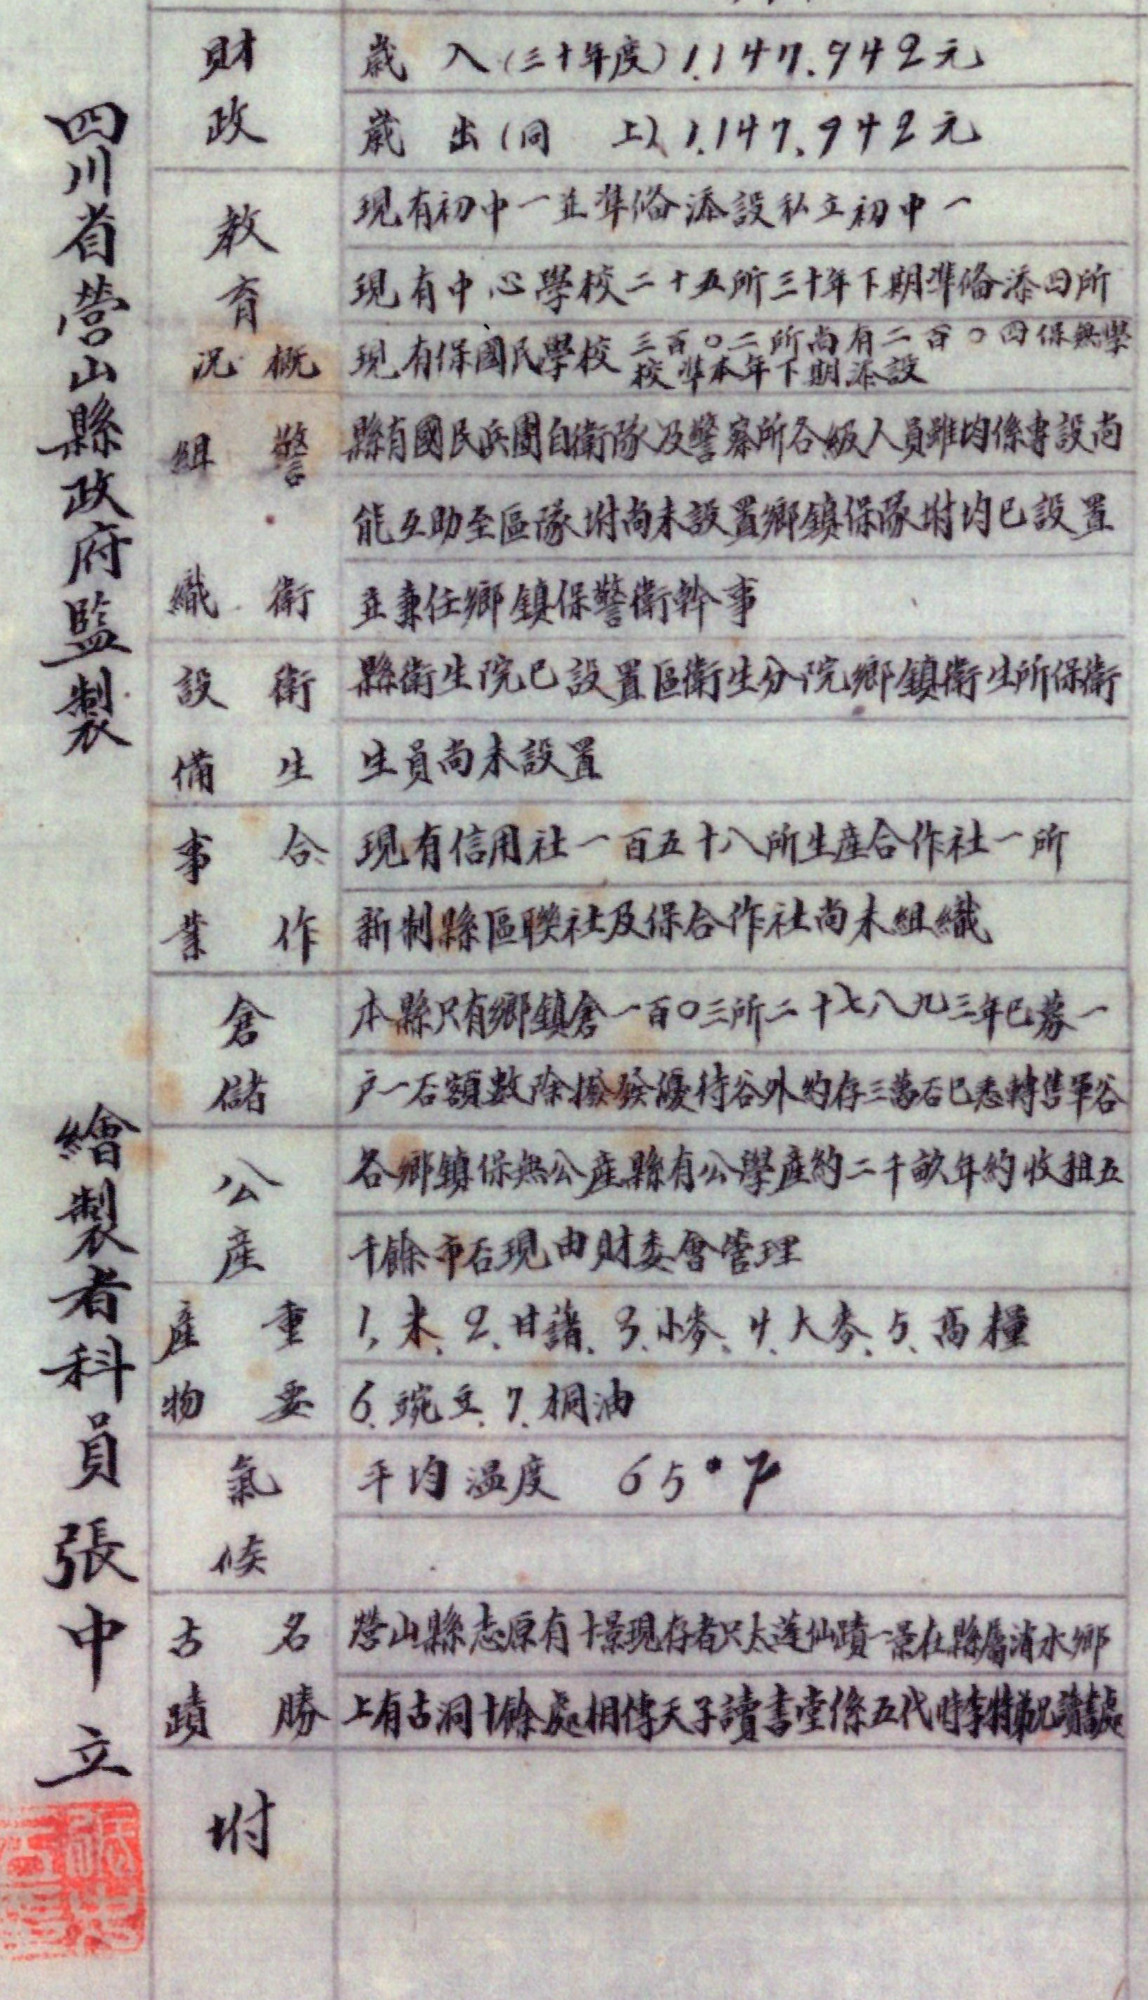 四川省營山縣政府監製
繪製者科員張中立
財政
歲入(三十年度)1.147.942元
歲出(同上)1.147.942元
教育概況
現有初中一並準俻添設私立初中一
現有中心學校二十五所三十年下期準俻添四所
現有保國民學校三百〇二所尚有二百〇四保無學
校準本年下期添設
警衛組織
縣有國民兵團自衛隊及警察所各級人員雖均係專設尚
能互助至區隊坿尚未設置鄉鎮保隊坿均已設置
並兼任鄉鎮保警衛幹事
衛生設備
縣衛生院已設置區衛生分院鄉鎮衛生所保衛
生員尚未設置
合作事業
現有信用社一百五十八所生產合作社一所
新制縣區聯社及保合作社尚未組織
倉儲
本縣只有鄉鎮倉一百〇三所二十七八九三年已募一
戶一石額數除撥發優待谷外約存三萬石已悉轉售軍谷
公產
各鄉鎮保無公產縣有公學產約二千畝年約收租五
千餘市石現由財委會管理
重要產物
1.米.2.甘諸.3.小麥.4.大麥.5.高糧
6.豌豆.7.桐油
氣候
平均溫度 65°7
名勝古蹟
營山縣志原有十景現存者只太蓬仙蹟一景在縣屬消水鄉
上有古洞十餘處相傳天子讀書堂係五代時李特弟兄讀書處
坿